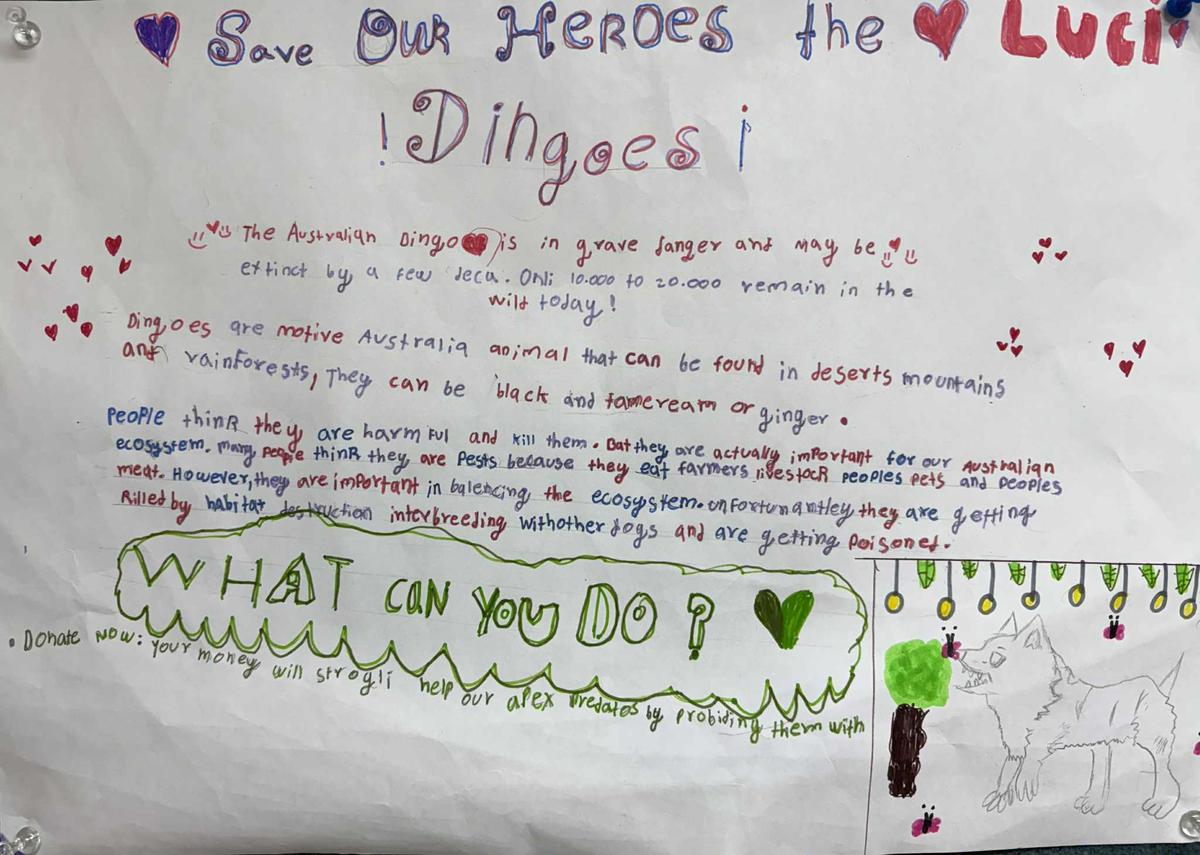 Save Our Heroes the Luci
!Dingoes¡
The Australian Dingo is in grave danger and may be
extinct by a few deca. Onli 10.000 to 20.000 remain in the
wild today!
Dingoes are motive Australia animal that can be found in deserts mountains
and rainforests, They can be black and tamcream or ginger.
People think they are harmful and kill them. But they are actually important for our Australian
ecosystem. Many people think they are pests because they eat farmers livestock peoples pets and peoples
meat. However, they are important in balencing the ecosystem. unfortunantley they are getting
killed by habitat destruction interbreeding withother dogs and are getting poisoned.
WHAT CAN YOU DO?
• Donate NOW: your money will strogli help our apex predatos by probiding them with